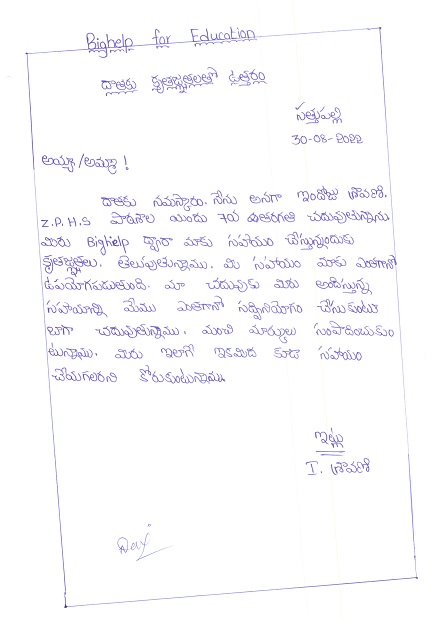 Bighelp for Education
దాతకు కృతజ్ఞతలతో ఉత్తరం
సత్తుపల్లి
30-08-2022
అయ్యా/అమ్మా !
దాతకు నమస్కారం. నేను అనగా ఇందోజు శ్రావణి.
Z.P.H.S పాఠశాల యందు 7వ తరగతి చదువుతున్నాను
మీరు Bighelp ద్వారా మాకు సహాయం చేస్తున్నందుకు
కృతజ్ఞతలు. తెలుపుతున్నాము. మీ సహాయం మాకు ఎంతగానో
ఉపయోగపడుతుంది. మా చదువుకు మీరు అందిస్తున్న
సహాయాన్ని మేము ఎంతగానో సద్వినియోగం చేసుకుంటూ
బాగా చదువుతున్నాము. మంచి మార్కులు సంపాదించుకుం
టున్నాము. మీరు ఇలాగే ఇకమీద కూడా సహాయం
చేయగలరని కోరుకుంటున్నాము.
ఇట్లు
I. శ్రావణి